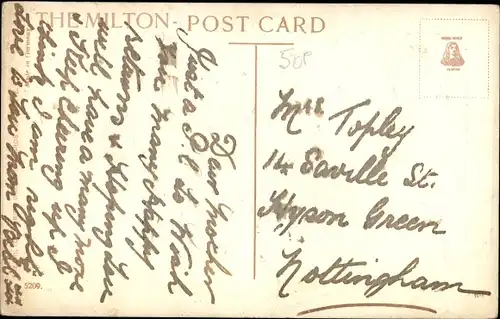 "THE MILTON" POST CARD
50P
Dear Mother
Just a P.C to Wish
You Many Happy
returns & Hoping you
will have a many more
& Keep clearing up I
think I am night
love to
Mrs Topley
14 Saville St.
Hyson Green
Nottingham
5209.